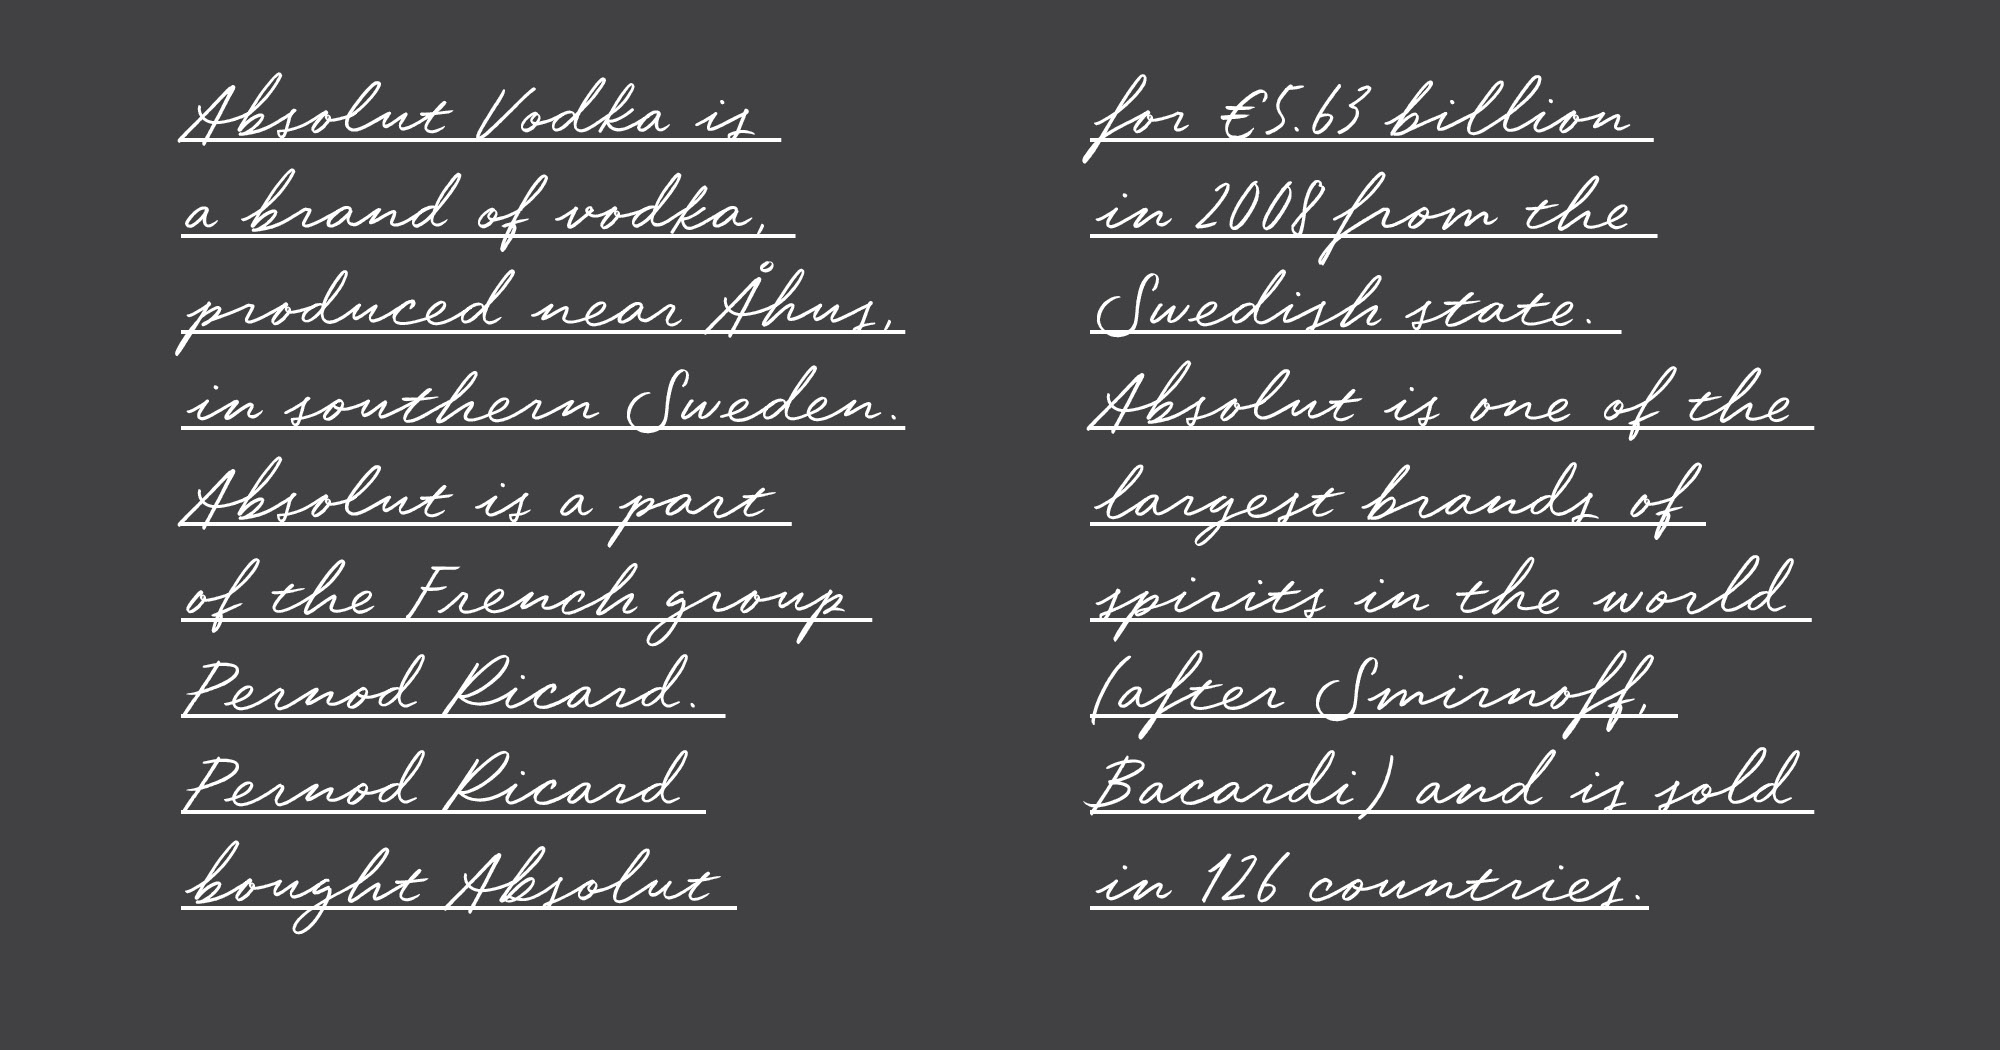 Absolut Vodka is
a brand of vodka,
produced near Åhus,
in southern Sweden.
Absolut is a part
of the French group
Pernod Ricard.
Pernod Ricard
bought Absolut
for €5.63 billion
in 2008 from the
Swedish state.
Absolut is one of the
largest brands of
spirits in the world
(after Smirnoff,
Bacardi) and is sold
in 126 countries.